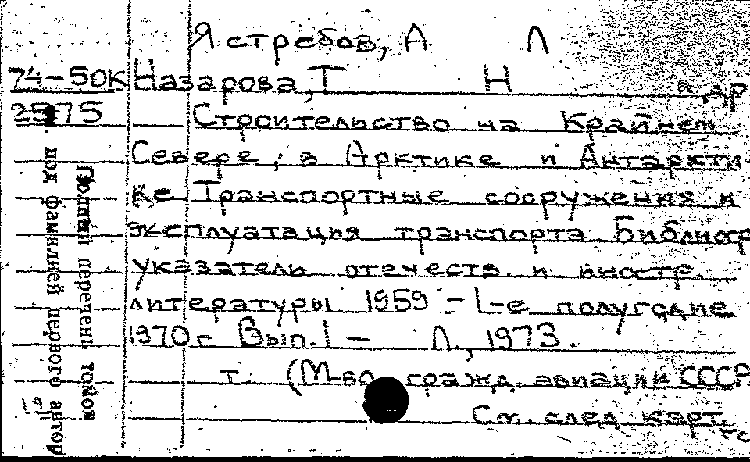 Ястребов, А Л
74-50К Назарова, Т Н и др
2575 Строительство на Крайнем
Севере, в Арктике и Антаркти
ке Транспортные сооружения и
эксплуатация транспорта Библиогр
указатель отечеств. и иностр.
литературы 1959 - 1-е полугодие
1970 г Вып. 1 - Л., 1973.
т. (М-во гражд. авиации СССР
См. след. карт.
Полный перечень
под фамилией первого автор